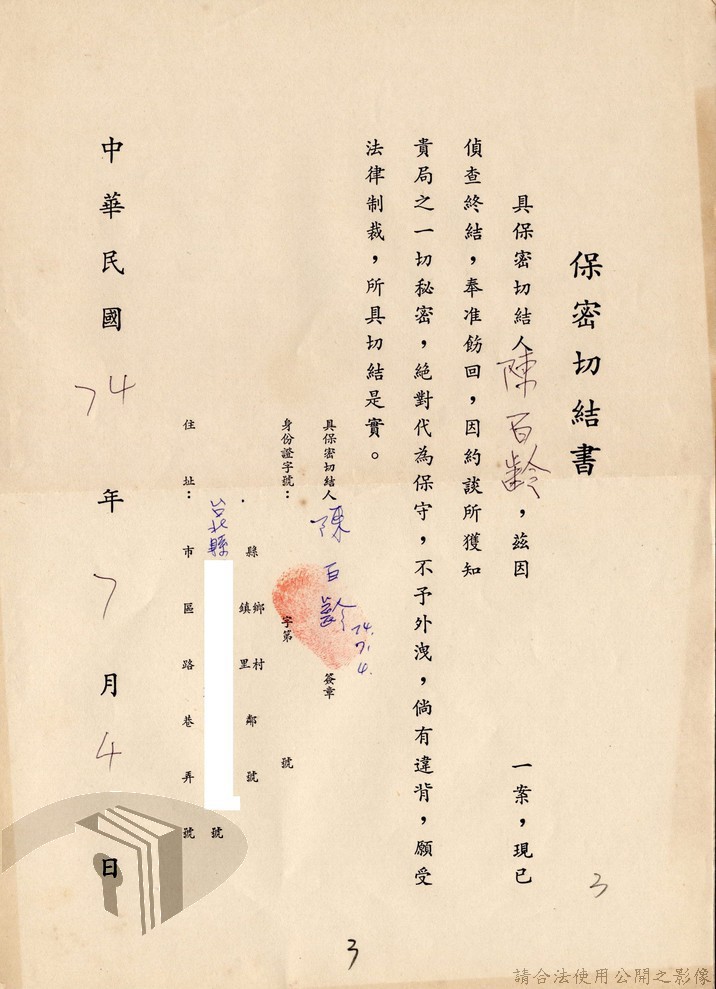 保密切結書
具保密切結人陳百齡，茲因　　一案，現已
偵查終結，奉准飭回，因約談所獲知
貴局之一切秘密，絕對代為保守，不予外洩，倘有違背，願受
法律制裁，所具切結是實。
具保密切結人 陳百齡 簽章
74.7.4.
身份證字號：　字第　號
縣 鄉鎮 村里 鄰 號
台北縣 號
住址：　市 區 路 巷 弄 號
中華民國 74 年 7 月 4 日
3
3
請合法使用公開之影像